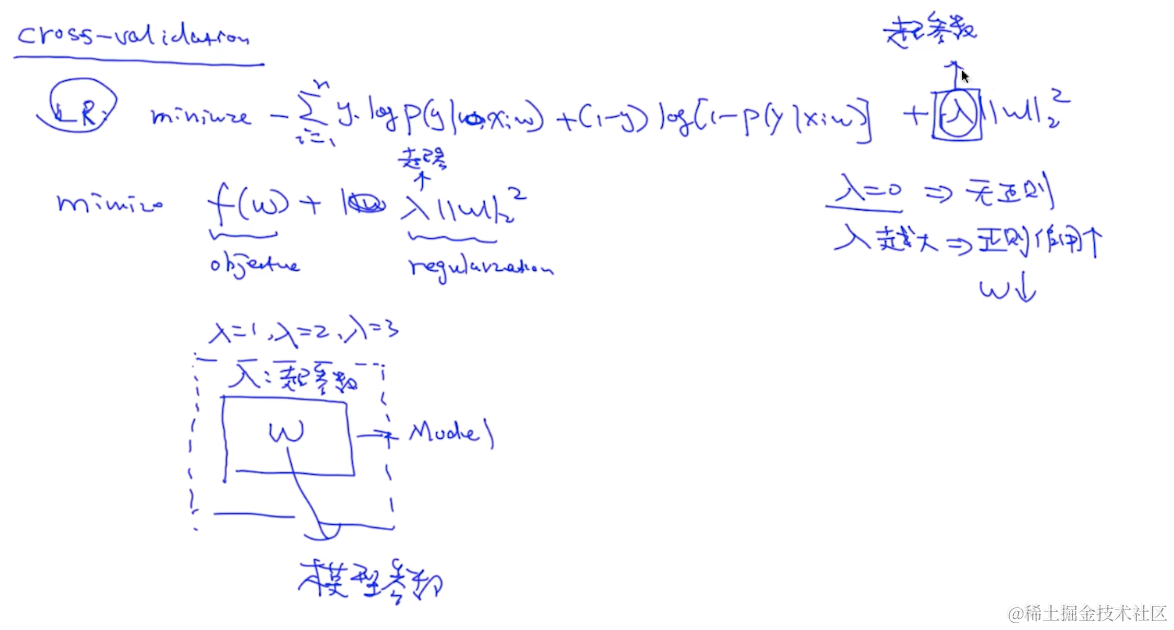 cross-validation
超参数
LR: minimize - ∑ⁿᵢ₌₁ y·log p(y|x;w) + (1-y) log[1-p(y|x;w)] + λ||w||₂²
超参
minimize f(w) + λ||w||₂²
objective regularization
λ=0 ⇒ 无正则
λ 越大 ⇒ 正则作用↑
w↓
λ=1, λ=2, λ=3
λ: 超参数
w → Model
模型参数
@稀土掘金技术社区